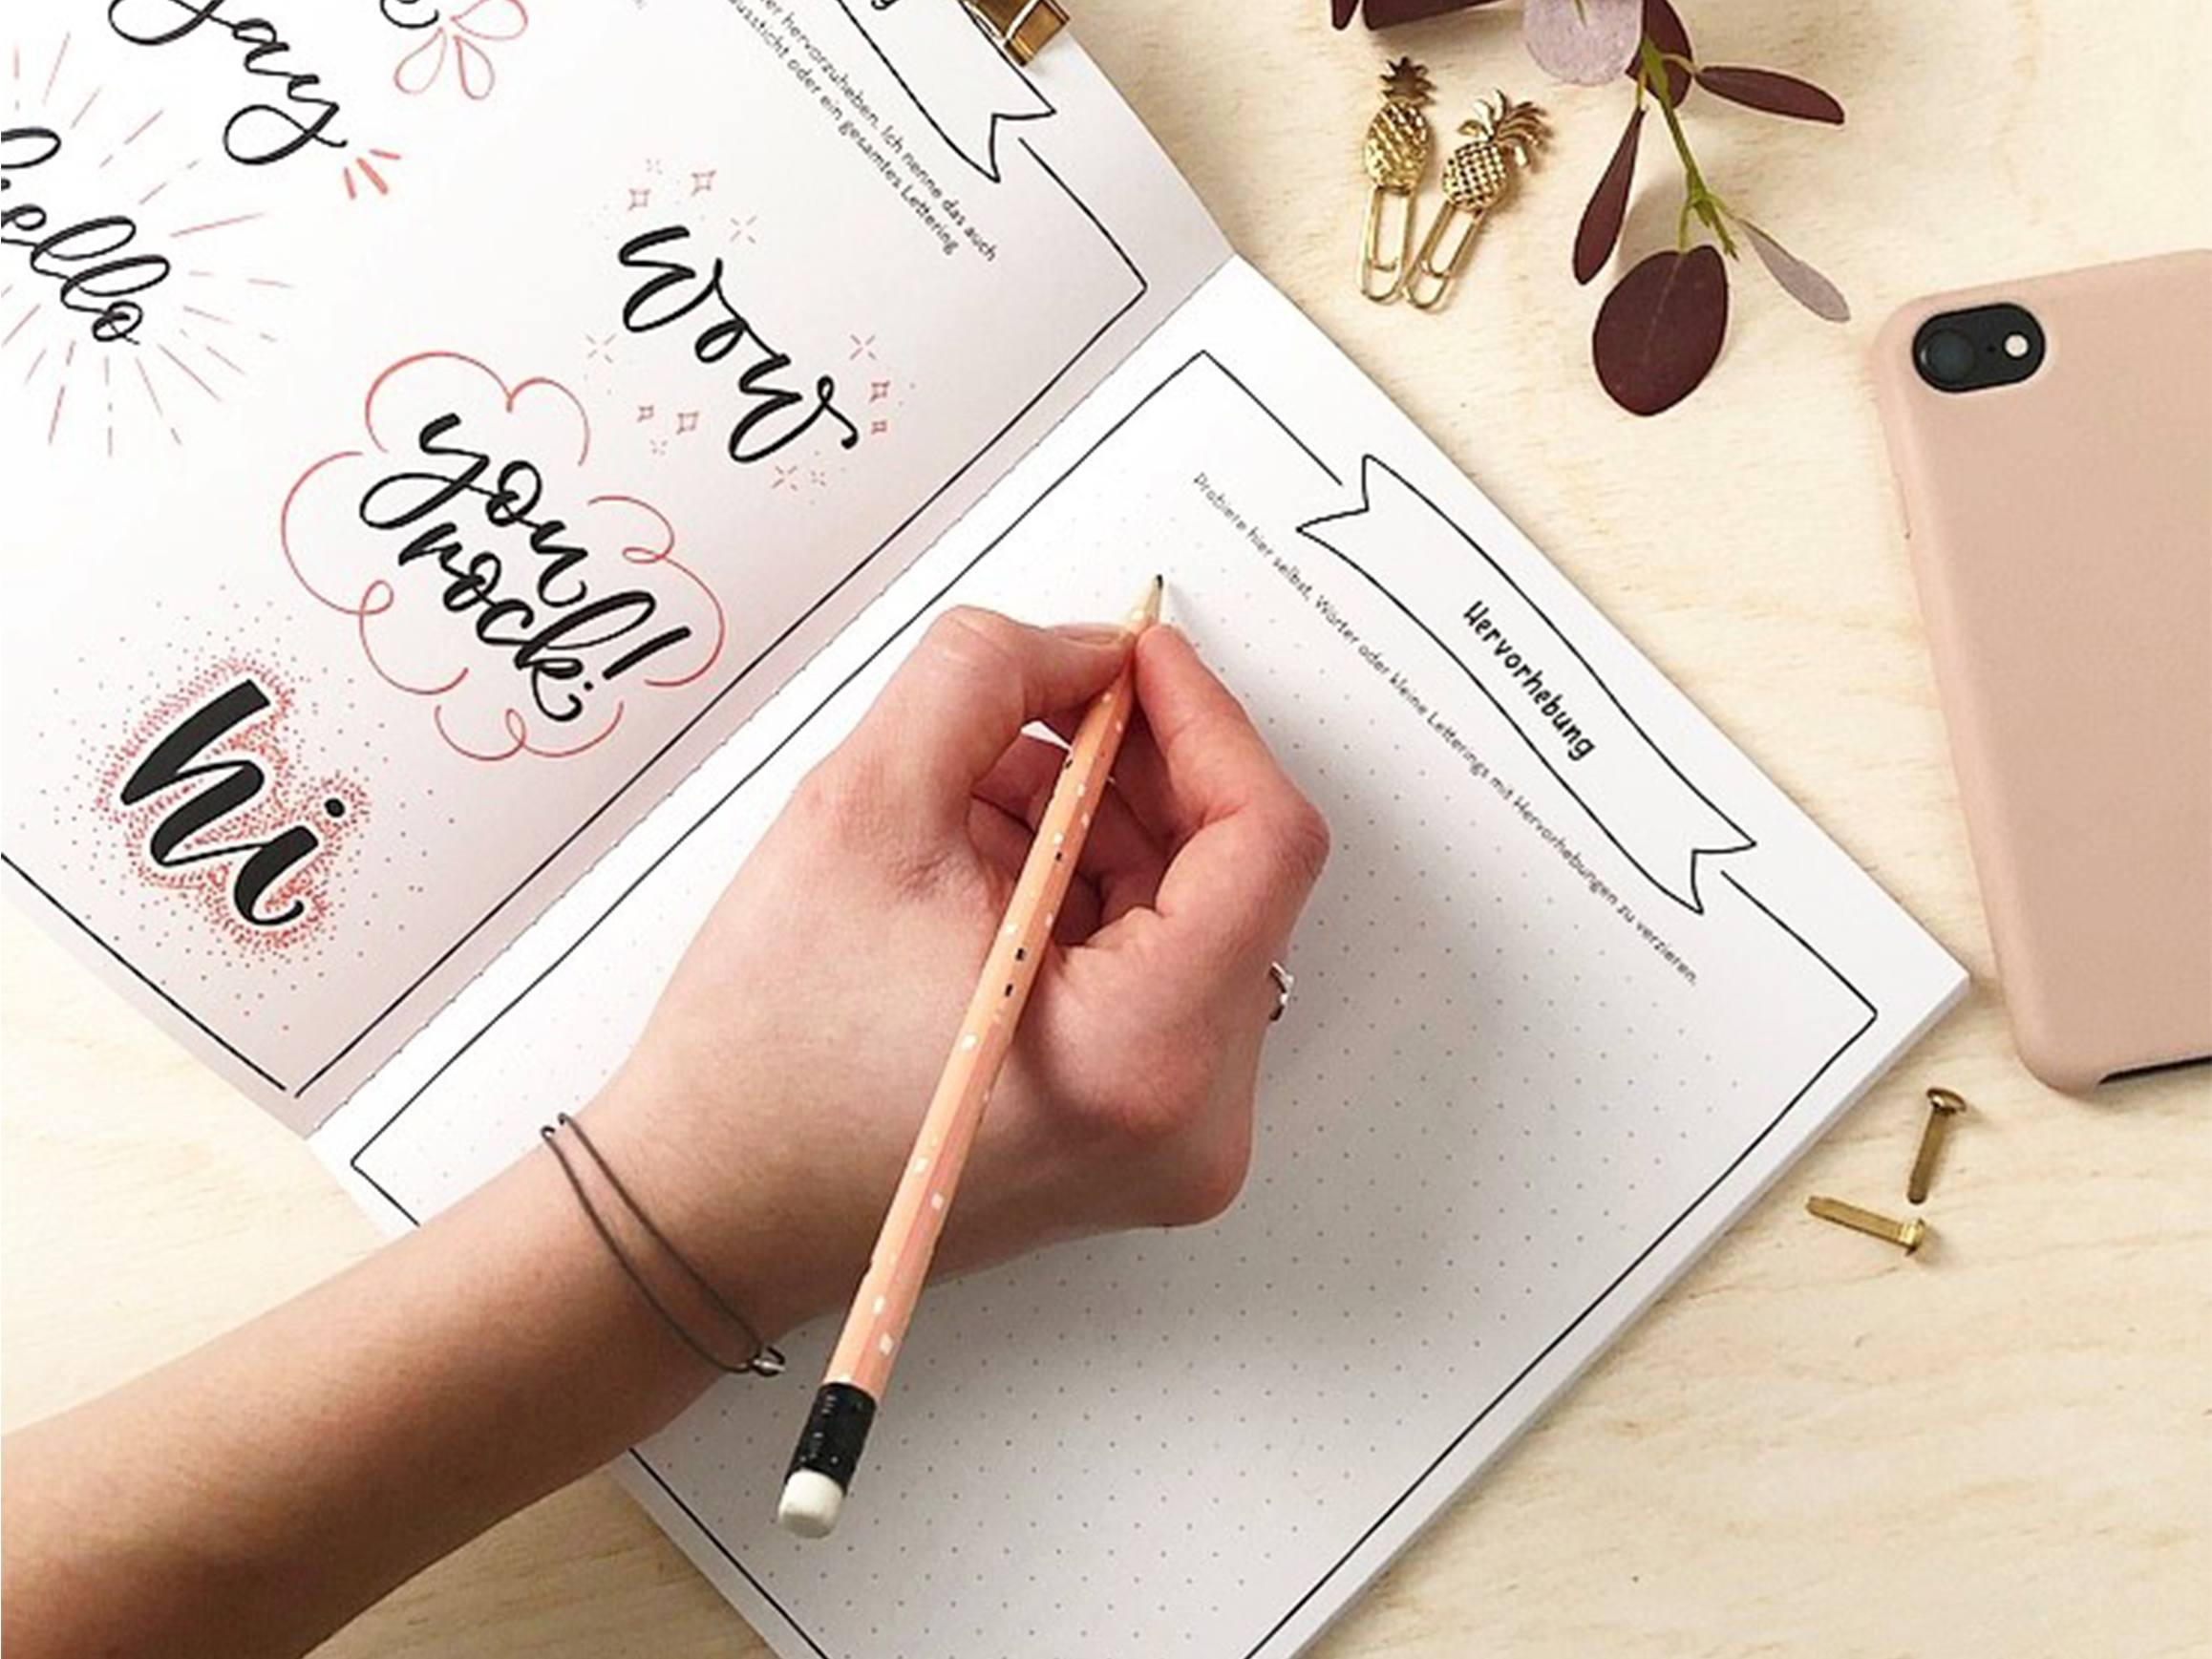 hervorzuheben. Ich nenne das auch
oder ein gesamtes Lettering
yay
hello
wow
you
rock!
hi
Hervorhebung
Probiere hier selbst, Wörter oder kleine Letterings mit Hervorhebungen zu verzieren.